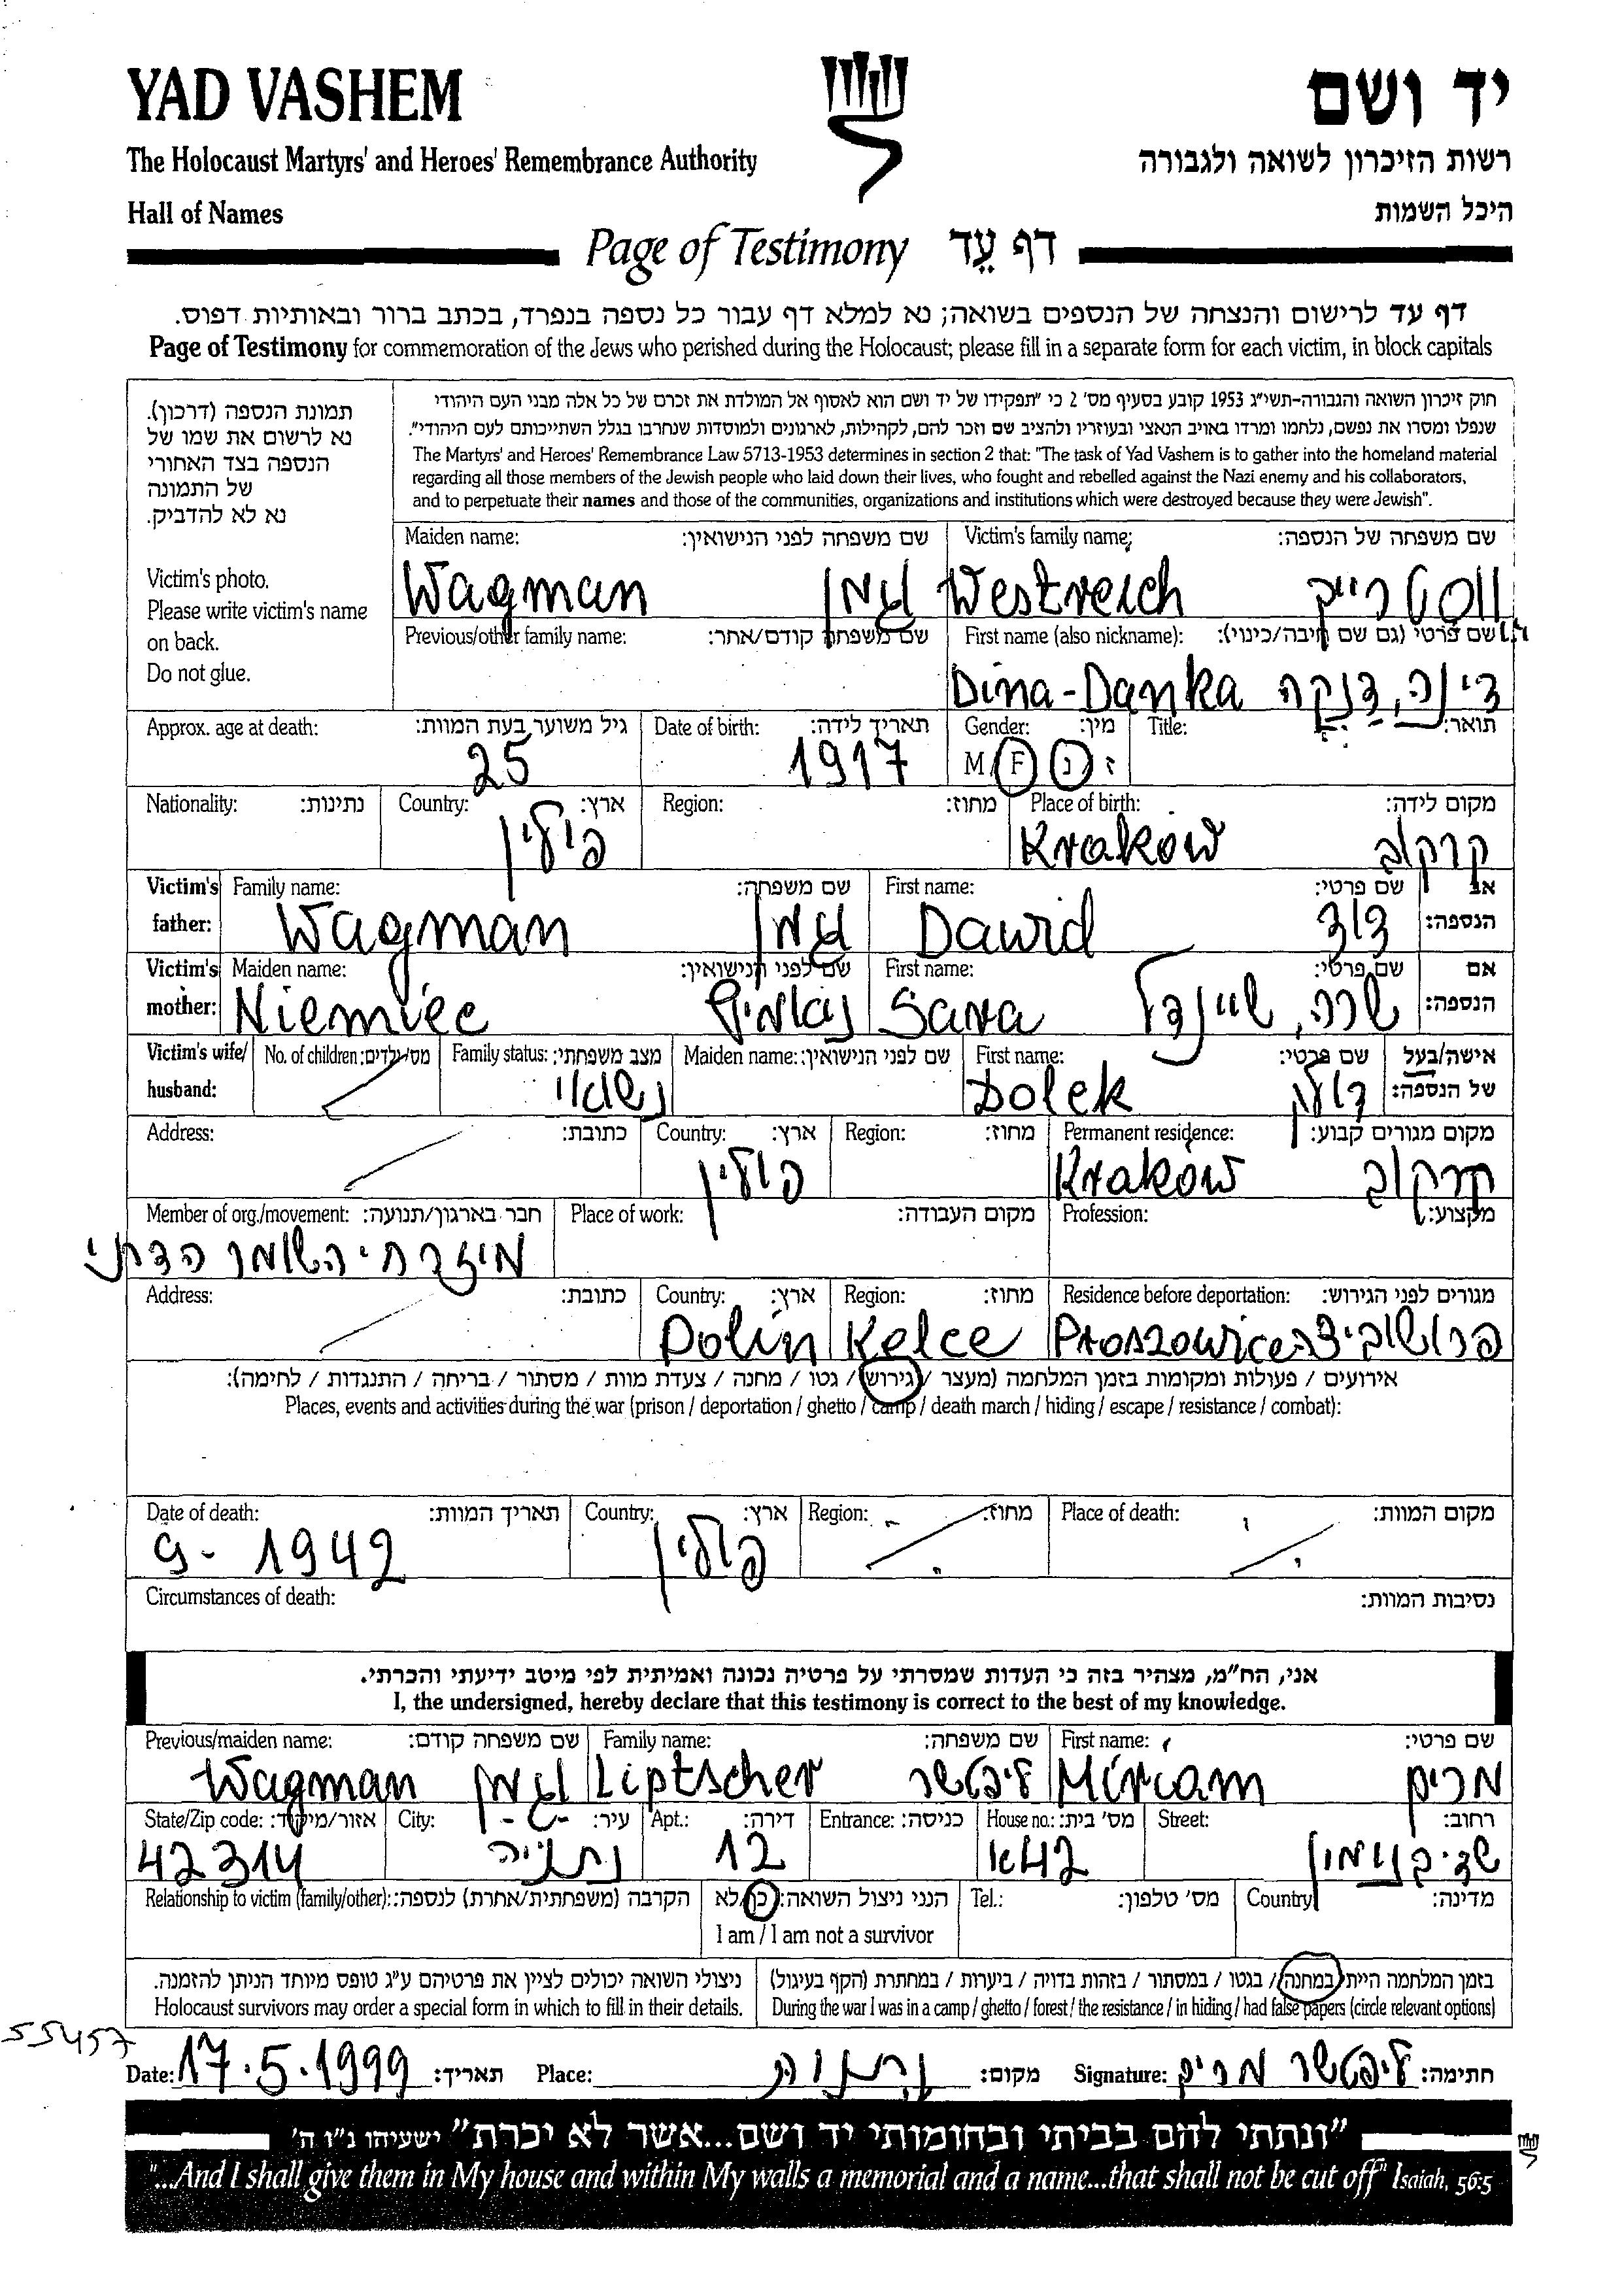 YAD VASHEM
יד ושם
The Holocaust Martyrs' and Heroes' Remembrance Authority
רשות הזיכרון לשואה ולגבורה
Hall of Names
היכל השמות
Page of Testimony דף עֵד
דף עד לרישום והנצחה של הנספים בשואה; נא למלא דף עבור כל נספה בנפרד, בכתב ברור ובאותיות דפוס.
Page of Testimony for commemoration of the Jews who perished during the Holocaust; please fill in a separate form for each victim, in block capitals
תמונת הנספה (דרכון).
נא לרשום את שמו של
הנספה בצד האחורי
של התמונה
נא לא להדביק.
Victim's photo.
Please write victim's name
on back.
Do not glue.
חוק זיכרון השואה והגבורה-תשי"ג 1953 קובע בסעיף מס' 2 כי "תפקידו של יד ושם הוא לאסוף אל המולדת את זכרם של כל אלה מבני העם היהודי
שנפלו ומסרו את נפשם, נלחמו ומרדו באויב הנאצי ובעוזריו ולהציב שם וזכר להם, לקהילות, לארגונים ולמוסדות שנחרבו בגלל השתייכותם לעם היהודי".
The Martyrs' and Heroes' Remembrance Law 5713-1953 determines in section 2 that: "The task of Yad Vashem is to gather into the homeland material
regarding all those members of the Jewish people who laid down their lives, who fought and rebelled against the Nazi enemy and his collaborators,
and to perpetuate their names and those of the communities, organizations and institutions which were destroyed because they were Jewish".
Maiden name: שם משפחה לפני הנישואין: Victim's family name: שם משפחה של הנספה:
Wagman וגמן Westreich ווסטרייך
Previous/other family name: שם משפחה קודם/אחר: First name (also nickname): שם פרטי (גם שם חיבה/כינוי):
Dina-Danka דינה, דנקה
Approx. age at death: גיל משוער בעת המוות: Date of birth: תאריך לידה: Gender: מין: Title: תואר:
25 1917 M/F נ/ז
Nationality: נתינות: Country: ארץ: Region: מחוז: Place of birth: מקום לידה:
פולין Kraków קרקוב
Victim's father: Family name: שם משפחה: First name: שם פרטי: אב הנספה:
Wagman וגמן Dawid דוד
Victim's mother: Maiden name: שם לפני הנישואין: First name: שם פרטי: אם הנספה:
Niemiec Sara שרה, שיינדל
Victim's wife/ husband: No. of children: מס' ילדים: Family status: מצב משפחתי: Maiden name: שם לפני הנישואין: First name: שם פרטי: אישה/בעל של הנספה:
נשואי Dolek דולק
Address: כתובת: Country: ארץ: Region: מחוז: Permanent residence: מקום מגורים קבוע:
פולין Kraków קרקוב
Member of org./movement: חבר בארגון/תנועה: Place of work: מקום העבודה: Profession: מקצוע:
מיזרחי השומר הדתי
Address: כתובת: Country: ארץ: Region: מחוז: Residence before deportation: מגורים לפני הגירוש:
Polin Kelce Proszowice פרושוביצה
אירועים / פעולות ומקומות בזמן המלחמה (מעצר / גירוש / גטו / מחנה / צעדת מוות / מסתור / בריחה / התנגדות / לחימה):
Places, events and activities during the war (prison / deportation / ghetto / camp / death march / hiding / escape / resistance / combat):
Date of death: תאריך המוות: Country: ארץ: Region: מחוז: Place of death: מקום המוות:
9- 1942 פולין
Circumstances of death: נסיבות המוות:
אני, הח"מ, מצהיר בזה כי העדות שמסרתי על פרטיה נכונה ואמיתית לפי מיטב ידיעתי והכרתי.
I, the undersigned, hereby declare that this testimony is correct to the best of my knowledge.
Previous/maiden name: שם משפחה קודם: Family name: שם משפחה: First name: שם פרטי:
Wagman וגמן Liptscher ליפטשר Miriam מרים
State/Zip code: אזור/מיקוד: City: עיר: Apt.: דירה: Entrance: כניסה: House no.: מס' בית: Street: רחוב:
42314 נתניה 12 42א
Relationship to victim (family/other): הקרבה (משפחתית/אחרת) לנספה: הנני ניצול השואה: כן/לא Tel.: מס' טלפון: Country: מדינה:
I am / I am not a survivor
ניצולי השואה יכולים לציין את פרטיהם ע"ג טופס מיוחד הניתן להזמנה. בזמן המלחמה הייתי במחנה / בגטו / במסתור / בזהות בדויה / ביערות / במחתרת (הקף בעיגול)
Holocaust survivors may order a special form in which to fill in their details. During the war I was in a camp / ghetto / forest / the resistance / in hiding / had false papers (circle relevant options)
55457
Date: 17.5.1999 תאריך: Place: מקום: Signature: ליפטשר מרים חתימה:
"ונתתי להם בביתי ובחומותי יד ושם...אשר לא יכרת" ישעיהו נ"ו ה'
"...And I shall give them in My house and within My walls a memorial and a name...that shall not be cut off" Isaiah, 56:5